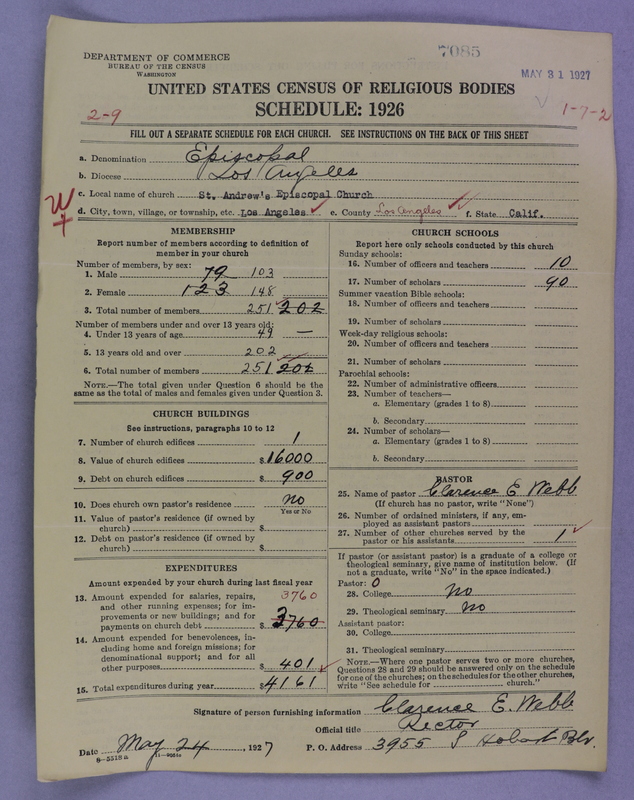 7085
MAY 31 1927
DEPARTMENT OF COMMERCE
BUREAU OF THE CENSUS
WASHINGTON
UNITED STATES CENSUS OF RELIGIOUS BODIES
SCHEDULE: 1926
2-9
1-7-2
FILL OUT A SEPARATE SCHEDULE FOR EACH CHURCH. SEE INSTRUCTIONS ON THE BACK OF THIS SHEET
a. Denomination Episcopal
b. Diocese Los Angeles
c. Local name of church St. Andrew's Episcopal Church
d. City, town, village, or township, etc. Los Angeles e. County Los Angeles f. State Calif.
MEMBERSHIP
Report number of members according to definition of
member in your church
Number of members, by sex:
1. Male 79 103
2. Female 123 148
3. Total number of members 251 202
Number of members under and over 13 years old:
4. Under 13 years of age 49 —
5. 13 years old and over 202
6. Total number of members 251 202
NOTE.—The total given under Question 6 should be the
same as the total of males and females given under Question 3.
CHURCH BUILDINGS
See instructions, paragraphs 10 to 12
7. Number of church edifices 1
8. Value of church edifices $16000
9. Debt on church edifices $ 900
10. Does church own pastor's residence no
Yes or No
11. Value of pastor's residence (if owned by
church) $
12. Debt on pastor's residence (if owned by
church) $
EXPENDITURES
Amount expended by your church during last fiscal year
13. Amount expended for salaries, repairs, 3760
and other running expenses; for im-
provements or new buildings; and for
payments on church debt $3760
14. Amount expended for benevolences, in-
cluding home and foreign missions; for
denominational support; and for all
other purposes $ 401
15. Total expenditures during year $4161
CHURCH SCHOOLS
Report here only schools conducted by this church
Sunday schools:
16. Number of officers and teachers 10
17. Number of scholars 90
Summer vacation Bible schools:
18. Number of officers and teachers
19. Number of scholars
Week-day religious schools:
20. Number of officers and teachers
21. Number of scholars
Parochial schools:
22. Number of administrative officers
23. Number of teachers—
a. Elementary (grades 1 to 8)
b. Secondary
24. Number of scholars—
a. Elementary (grades 1 to 8)
b. Secondary
PASTOR
25. Name of pastor Clarence E Webb
(If church has no pastor, write "None")
26. Number of ordained ministers, if any, em-
ployed as assistant pastors
27. Number of other churches served by the
pastor or his assistants 1
If pastor (or assistant pastor) is a graduate of a college or
theological seminary, give name of institution below. (If
not a graduate, write "No" in the space indicated.)
Pastor: 0
28. College No
29. Theological seminary no
Assistant pastor:
30. College
31. Theological seminary
NOTE.—Where one pastor serves two or more churches,
Questions 28 and 29 should be answered only on the schedule
for one of the churches; on the schedules for the other churches,
write "See schedule for church."
Signature of person furnishing information Clarence E. Webb
Official title Rector
Date May 24, 1927 P. O. Address 3955 S Hobart Blv.
8-5518a